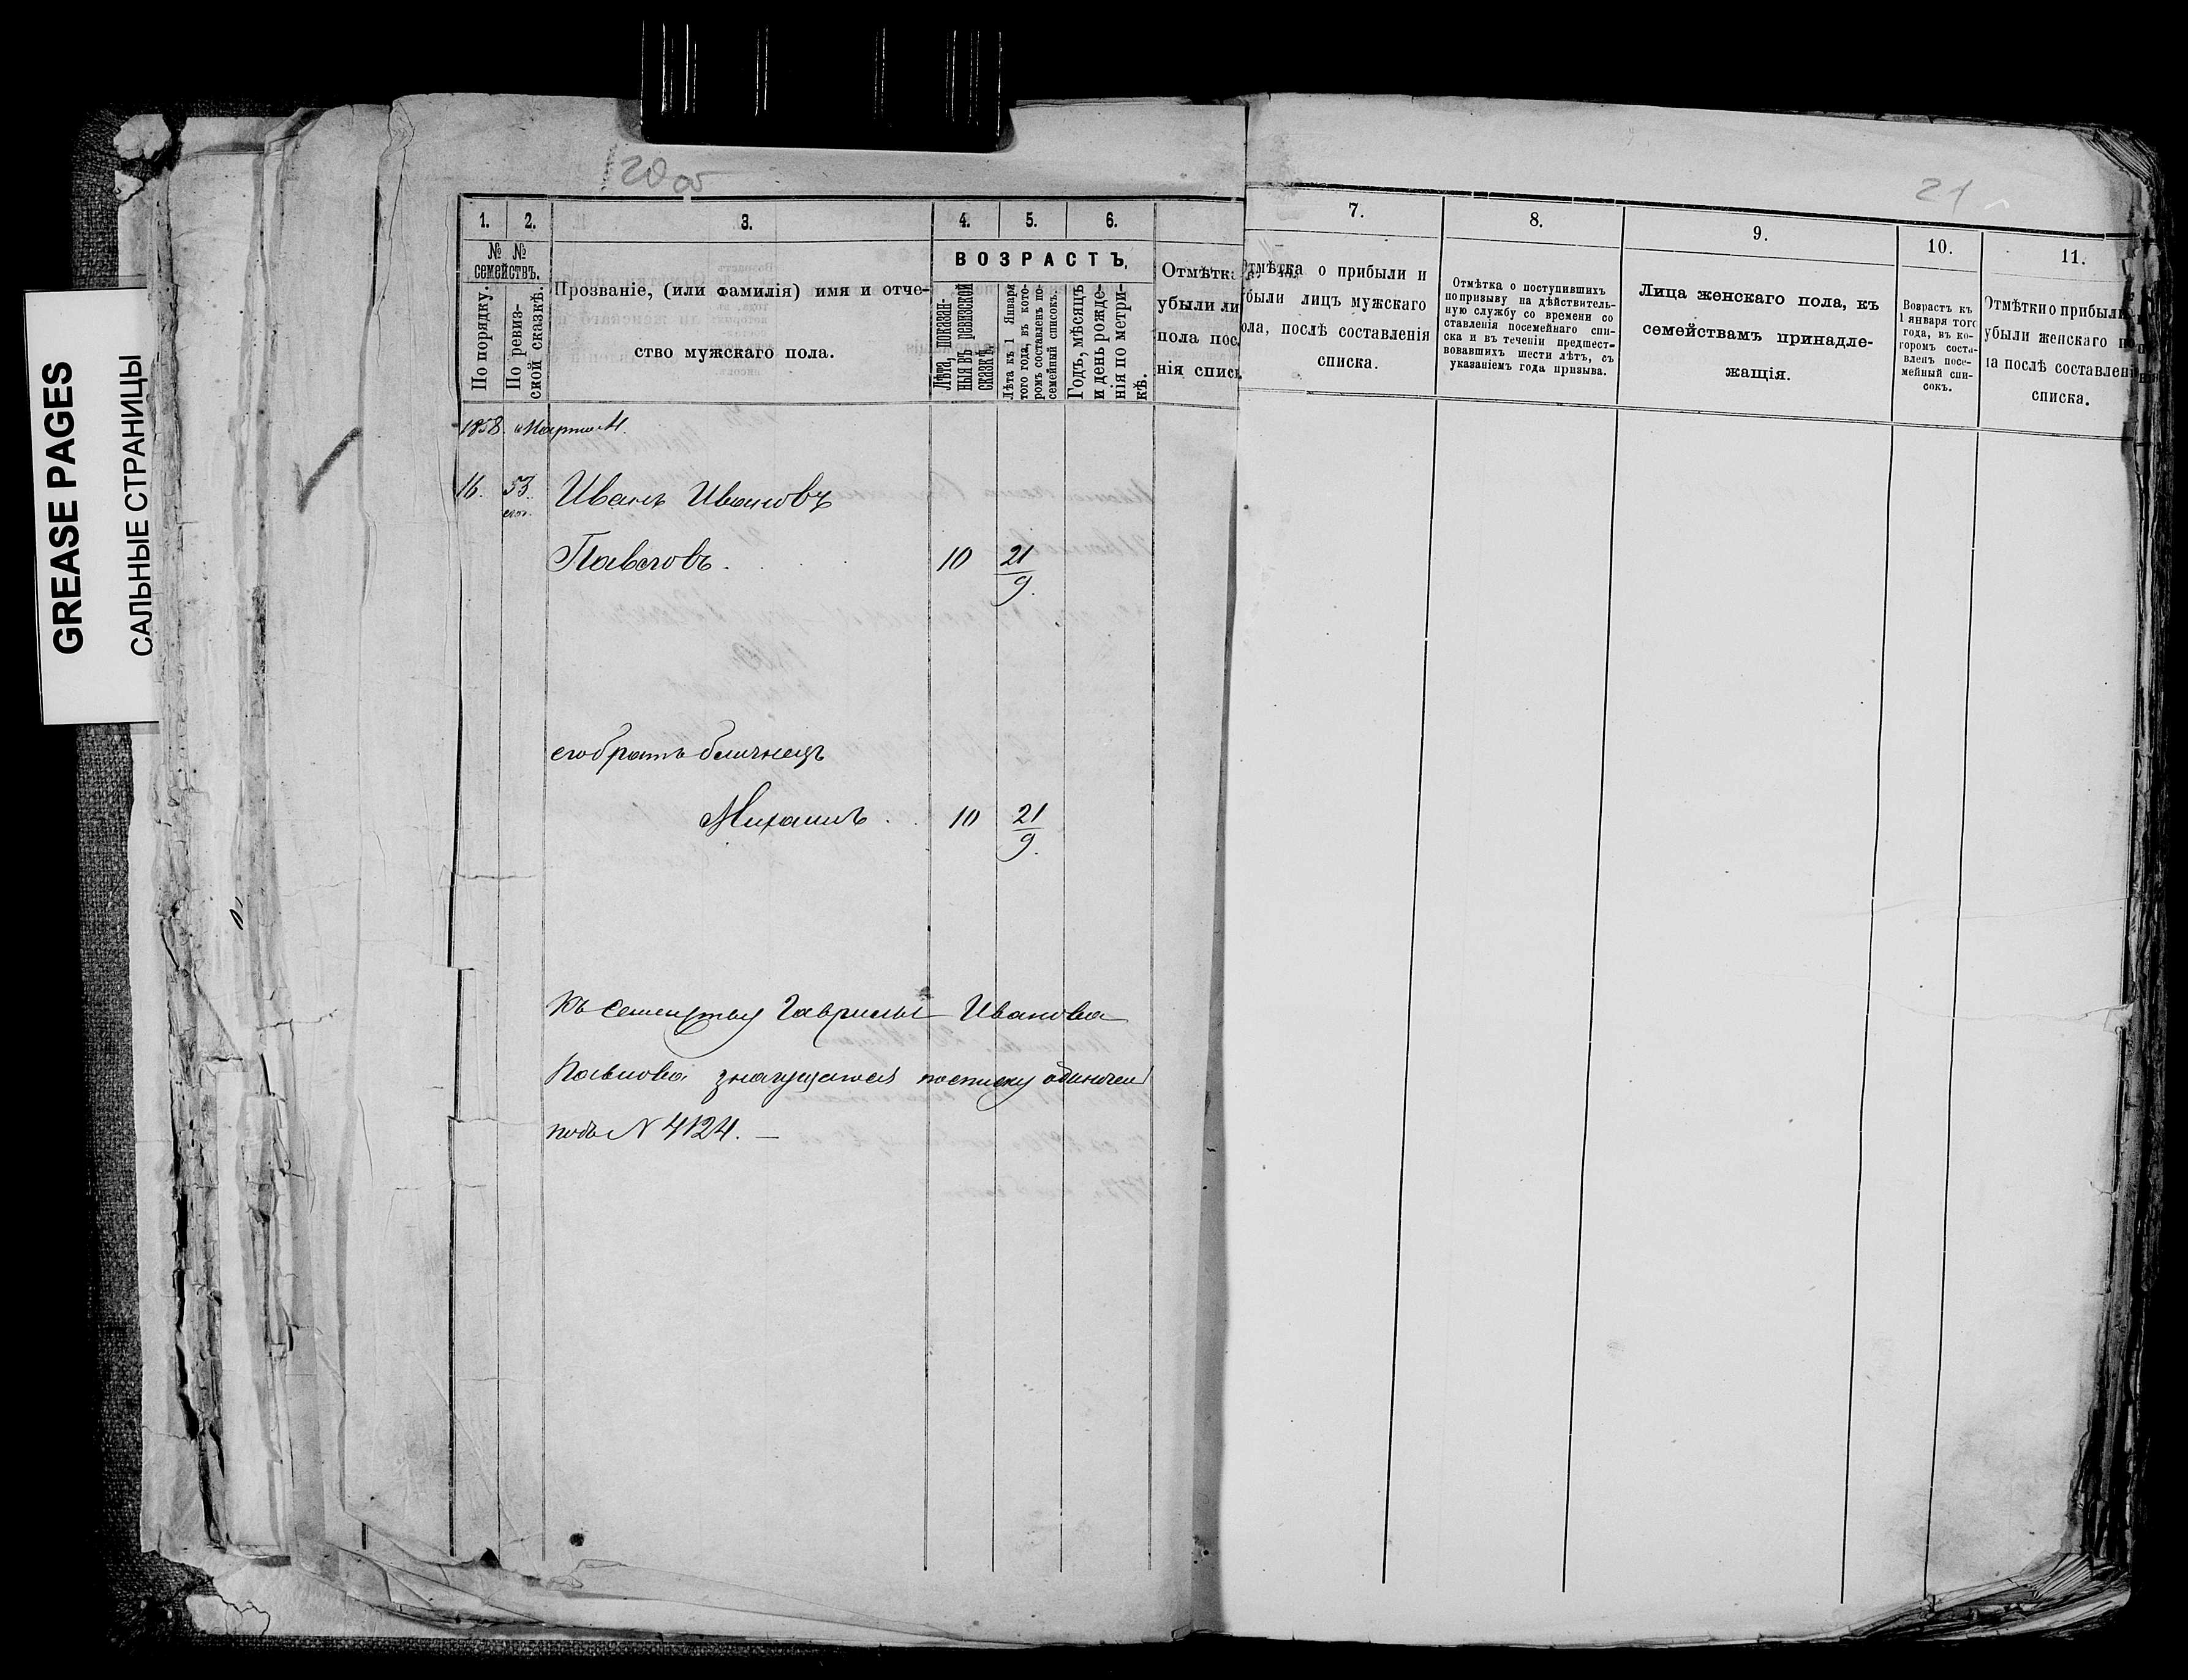 GREASE PAGES
САЛЬНЫЕ СТРАНИЦЫ
20 об
21
1. 2. 3. 4. 5. 6.
№ № семействъ.
По порядку.
По ревиз-
ской сказкѣ.
Прозваніе, (или фамилія) имя и отче-
ство мужскаго пола.
ВОЗРАСТЪ,
Лѣта, показан-
ныя въ ревизской
сказкѣ.
Лѣта къ 1 Января
того года, въ кото-
ромъ составленъ по-
семейный списокъ.
Годъ, мѣсяцъ
и день рожде-
нія по метри-
кѣ.
Отмѣтка
убыли ли
пола пос
нія списк
7. 8. 9. 10. 11.
Отмѣтка о прибыли и
были лицъ мужскаго
ола, послѣ составленія
списка.
Отмѣтка о поступившихъ
по призыву на дѣйствитель-
ную службу со времени со
ставленія посемейнаго спи-
ска и въ теченіи предшест-
вовавшихъ шести лѣтъ, съ
указаніемъ года призыва.
Лица женскаго пола, къ
семействамъ принадле-
жащія.
Возрастъ къ
1 января того
года, въ ко-
торомъ соста-
вленъ посе-
мейный спи-
сокъ.
Отмѣтки о прибыли
убыли женскаго по
ла послѣ составлені
списка.
1858. Марта
16. 53. Иванъ Ивановъ
Павловъ. 10 21/9.
его братъ близнецъ
Михаилъ . . 10 21/9.
Къ семейству Гаврилы Иванова
Павлова значущагося по списку
подъ N 4124. —